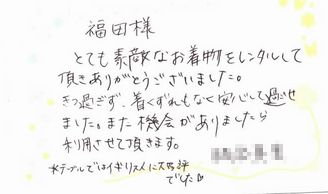 福田様
とても素敵なお着物をレンタルして
頂きありがとうございました。
きつ過ぎず、着くずれもなく安心して過せ
ました。また機会がありましたら
利用させて頂きます。
*テーブルではイギリス人に大好評
でした♡